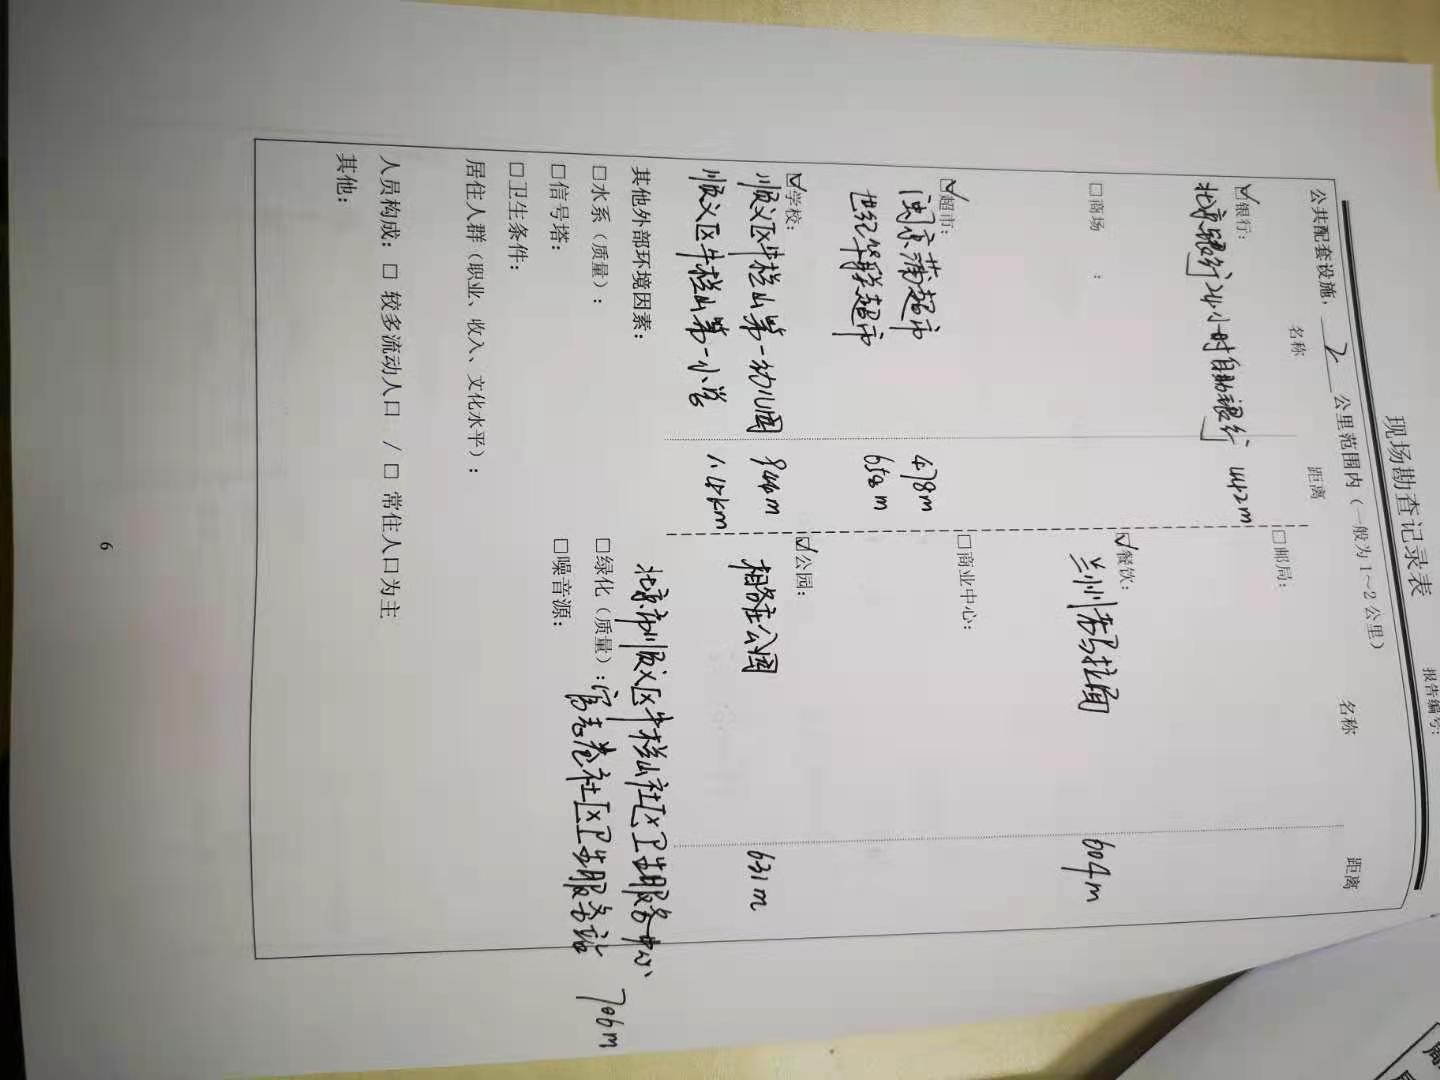 报告编号:
现场勘查记录表
公共配套设施，2公里范围内（一般为1~2公里）
名称 距离 名称 距离
☑银行： □邮局：
北京银行24小时自助银行 442m
□商场 ： ☑餐饮：
兰州老马拉面 604m
☑超市： □商业中心：
闽京蒲超市 478m
世纪华联超市 658m
☑学校： ☑公园：
顺义区牛栏山第一幼儿园 944m 相各庄公园 631m
顺义区牛栏山第一小学 1.42km
其他外部环境因素： 北京市顺义区牛栏山社区卫生服务中心
□水系（质量）： □绿化（质量）： 官志卷社区卫生服务站 706m
□信号塔： □噪音源：
□卫生条件：
居住人群（职业、收入、文化水平）：
人员构成：□ 较多流动人口 /□ 常住人口为主
其他：
6